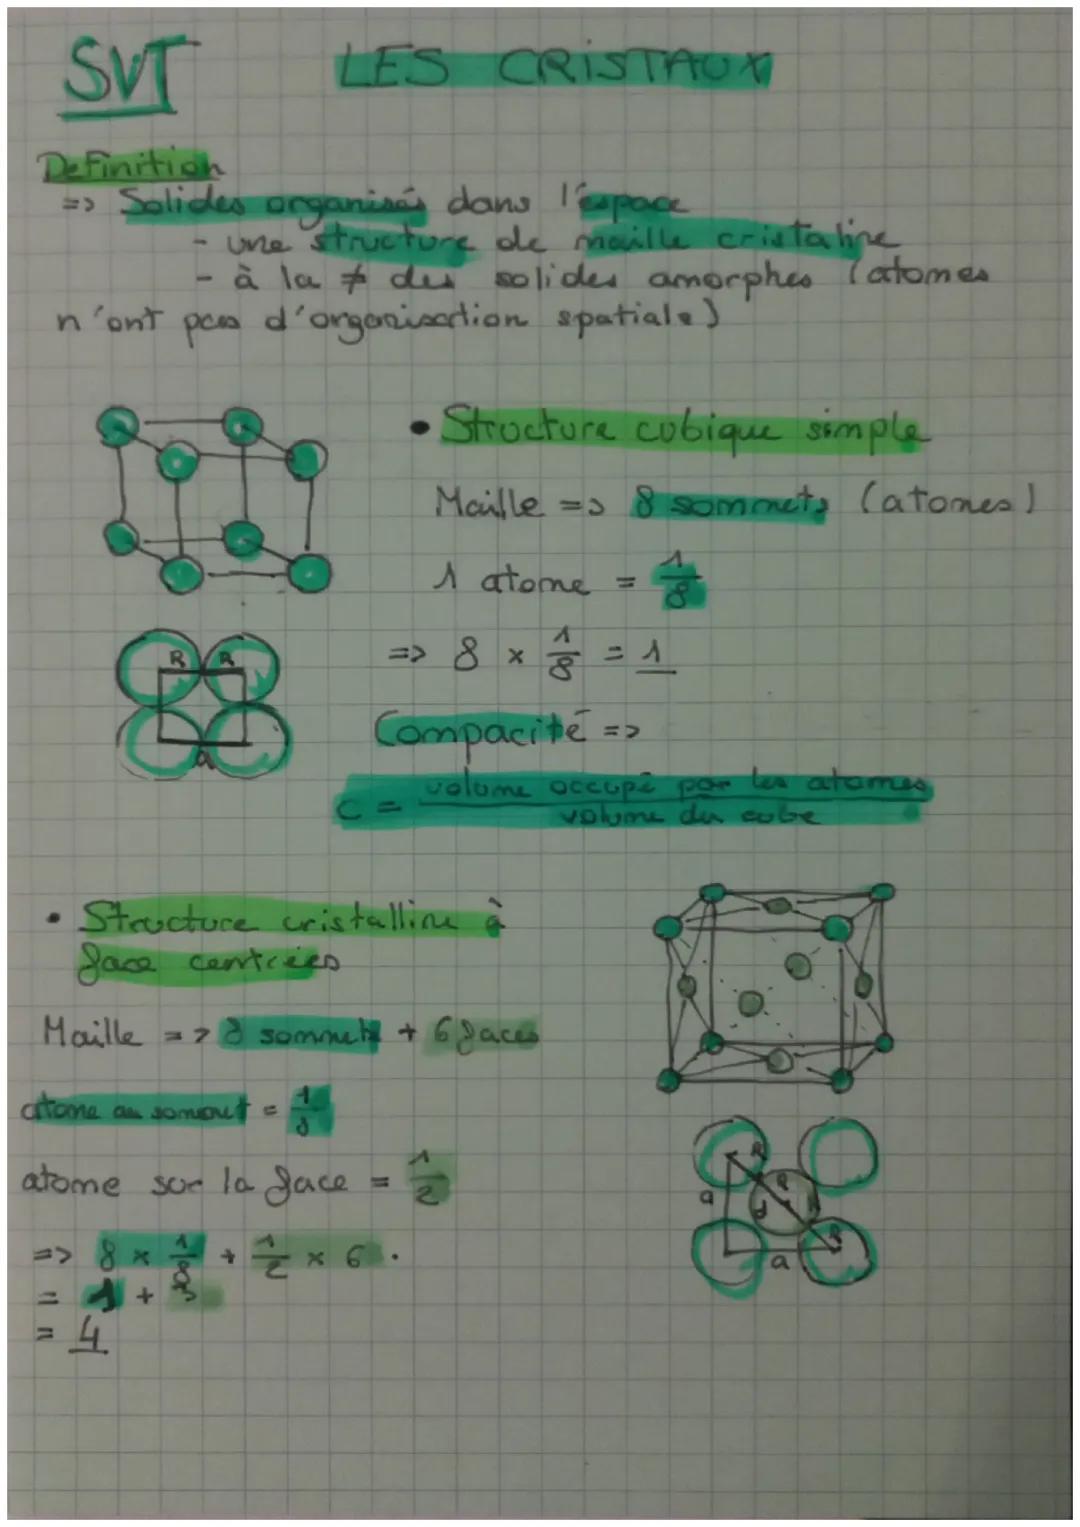 SVT
LES CRISTAUX
Definition
=> Solides organisés dans l'éspace
- une structure de maille cristaline
- à la ≠ des solides amorphes (atomes
n'ont pas d'organisation spatiale)
• Structure cubique simple
Maille => 8 sommets (atomes)
1 atome = 1/8
=> 8 x 1/8 = 1
R R
a
Compacité =>
C = volume occupé par les atomes / volume du cube
• Structure cristalline à
face centrées
Maille => 8 sommets + 6 faces
atome au sommet = 1/8
atome sur la face = 1/2
=> 8 x 1/8 + 1/2 x 6.
= 1 + 3
= 4
R
a
d
R
a